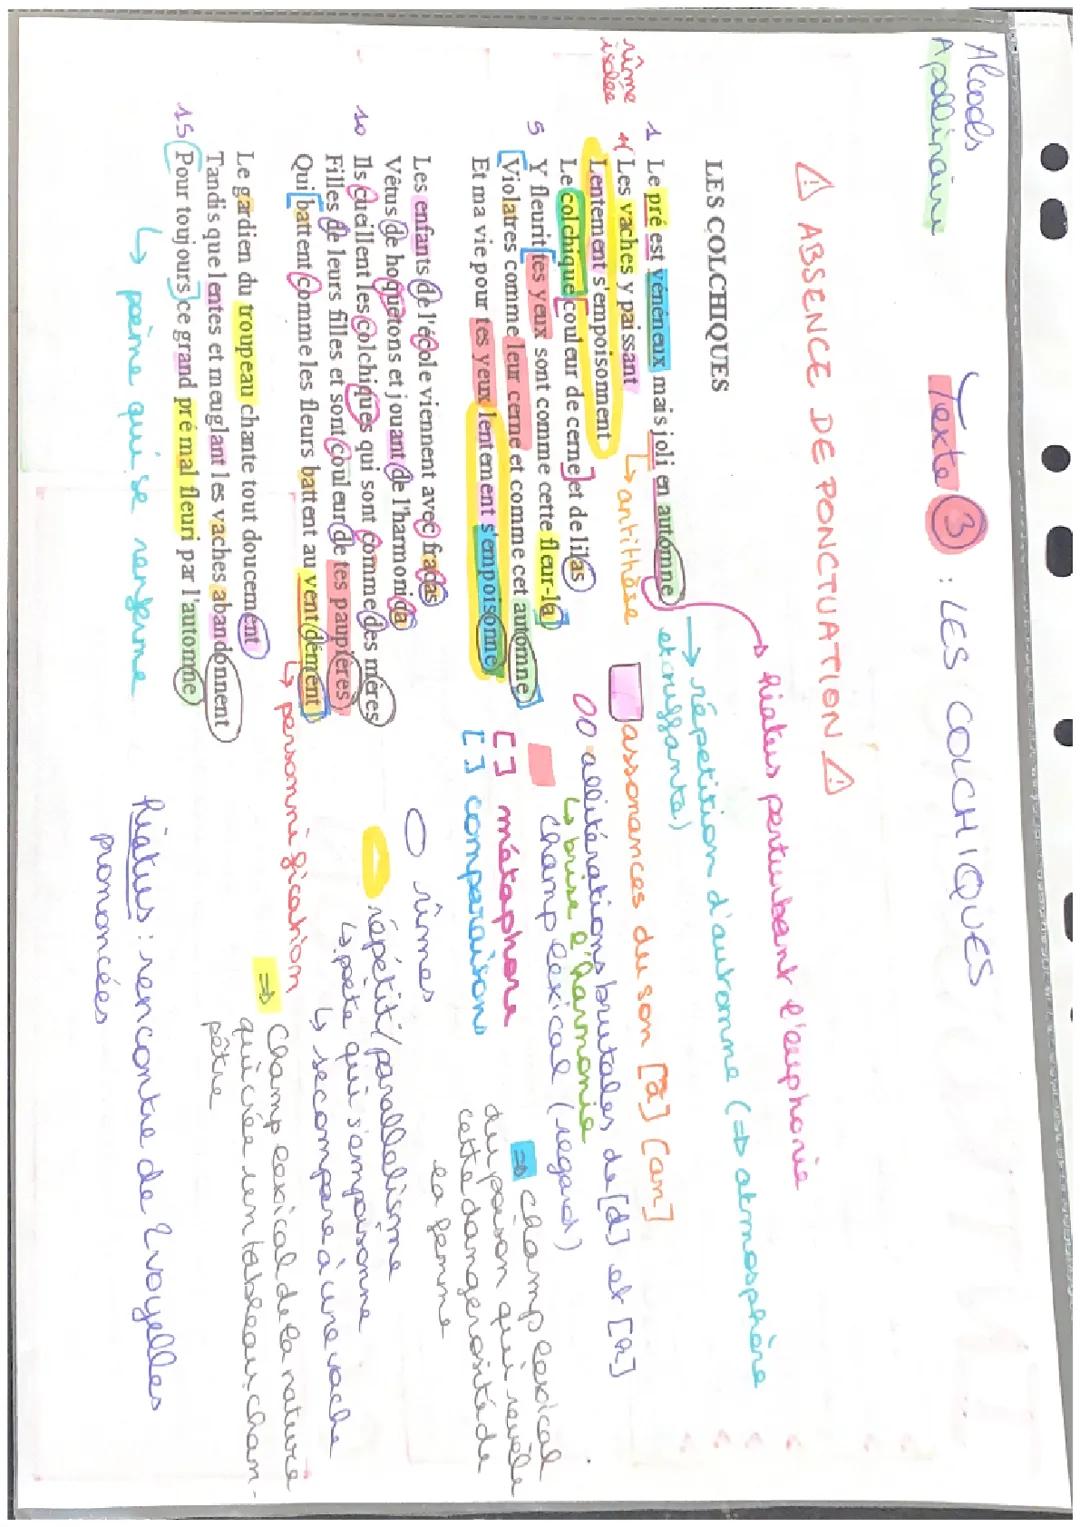 Alcools
Apollinaire
Texte 3 : LES COLCHIQUES
⚠ ABSENCE DE PONCTUATION ⚠
↳ hiatus perturbant l'euphonie
LES COLCHIQUES
→ répétition d'automne (=> atmosphère
étouffante)
1 Le pré est vénéneux mais joli en automne
Les vaches y paissant
rime isolée
Lentement s'empoisonnent
↳ antithèse
Le colchique couleur de cerne et de lilas
5 Y fleurit tes yeux sont comme cette fleur-la
Violatres comme leur cerne et comme cet automne
Et ma vie pour tes yeux lentement s'empoisonne
Les enfants de l'école viennent avec fracas
Vêtus de hoquetons et jouant de l'harmonica
10 Ils cueillent les colchiques qui sont comme des mères
Filles de leurs filles et sont couleur de tes paupières
Qui battent comme les fleurs battent au vent dément
↳ personnification
Le gardien du troupeau chante tout doucement
Tandis que lentes et meuglant les vaches abandonnent
15 Pour toujours ce grand pré mal fleuri par l'automne
↳ poème qui se renferme
assonances du son [ã] (an)
allitérations brutales de [d] et [k]
↳ brise l'harmonie
champ lexical (regard)
[ ] métaphore
[ ] comparaison
=> champ lexical
du poison qui révèle
cette dangerosité de
la femme
rimes
répétit°/parallélisme
↳ poète qui s'empoisonne
↳ se compare à une vache
=> Champ lexical de la nature
qui crée un tableau cham-
pêtre
hiatus : rencontre de 2 voyelles
prononcées